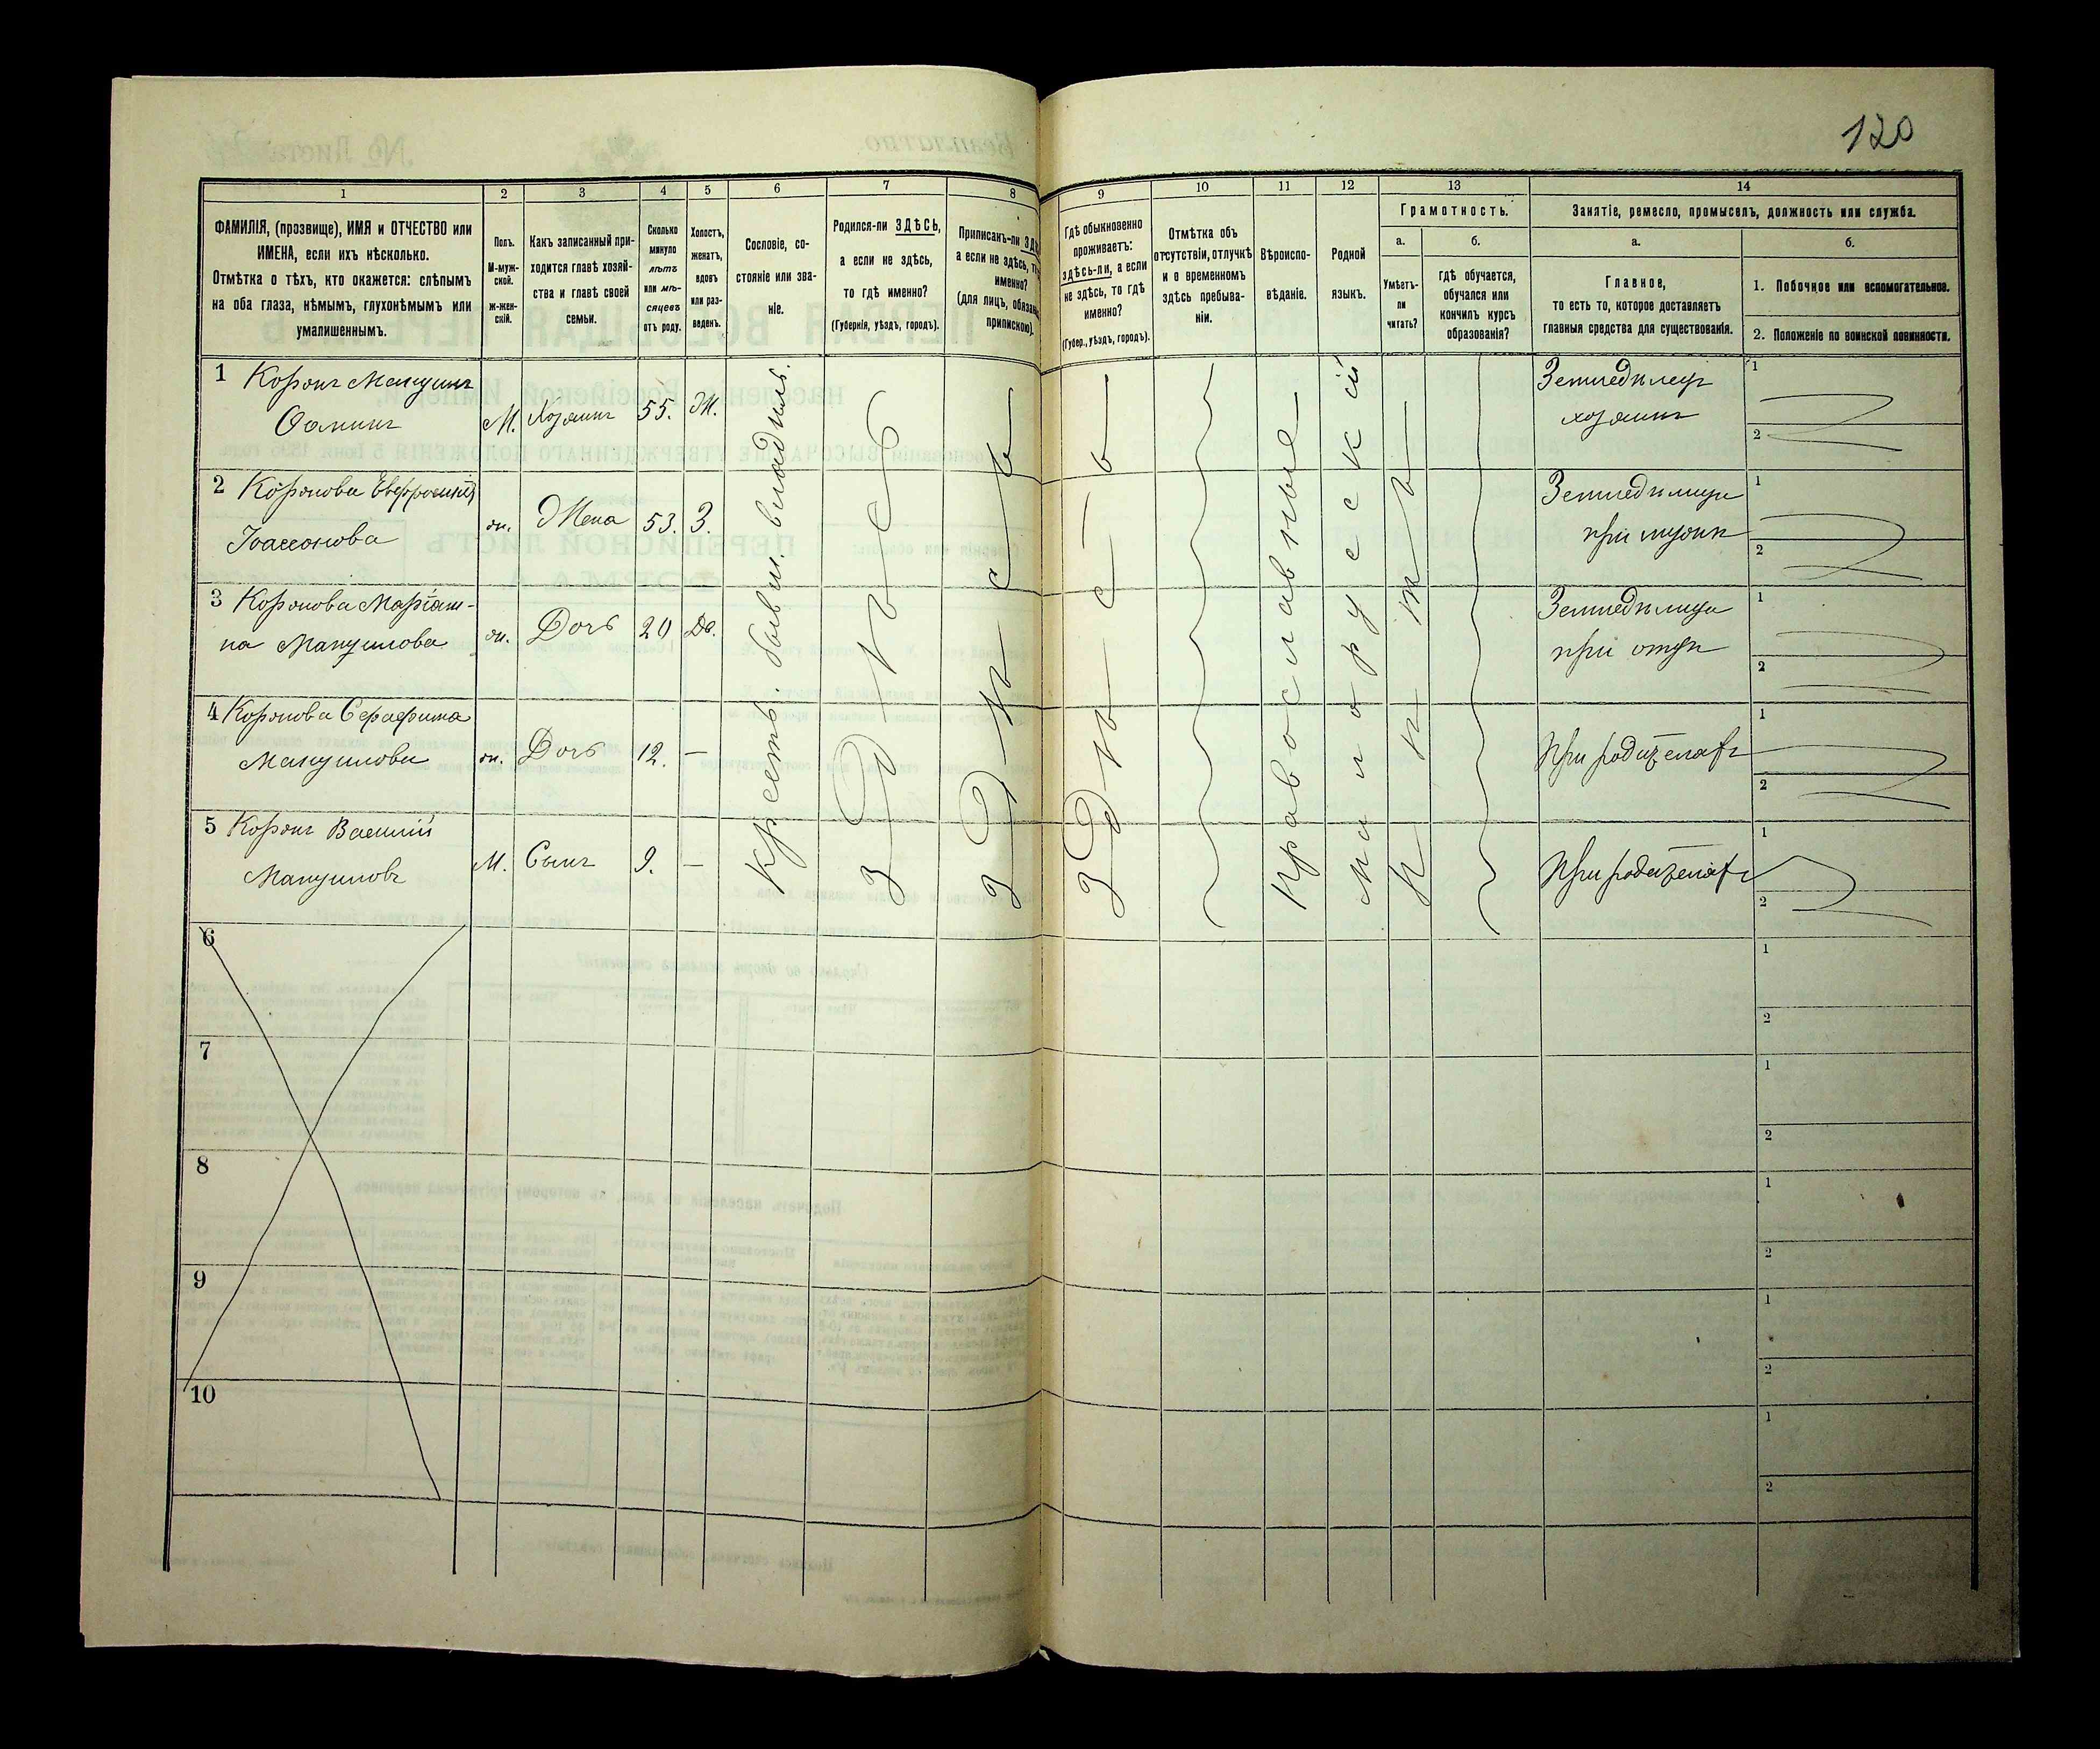 120
1
2
3
4
5
6
7
8
9
10
11
12
13
14
ФАМИЛІЯ, (прозвище), ИМЯ и ОТЧЕСТВО или
ИМЕНА, если ихъ нѣсколько.
Отмѣтка о тѣхъ, кто окажется: слѣпымъ
на оба глаза, нѣмымъ, глухонѣмымъ или
умалишеннымъ.
Полъ.
М-муж-
ской.
Ж-жен-
скій.
Какъ записанный при-
ходится главѣ хозяй-
ства и главѣ своей
семьи.
Сколько
минуло
лѣтъ
или мѣ-
сяцевъ
отъ роду.
Холостъ,
женатъ,
вдовъ
или раз-
веденъ.
Сословіе, со-
стояніе или зва-
ніе.
Родился-ли ЗДѢСЬ,
а если не здѣсь,
то гдѣ именно?
(Губернія, уѣздъ, городъ).
Приписанъ-ли
а если не здѣсь,
именно?
(для лицъ,
припискою).
Гдѣ обыкновенно
проживаетъ:
здѣсь-ли, а если
не здѣсь, то гдѣ
именно?
(Губер., уѣздъ, городъ).
Отмѣтка объ
отсутствіи, отлучкѣ
и о временномъ
здѣсь пребыва-
ніи.
Вѣроиспо-
вѣданіе.
Родной
языкъ.
Грамотность.
а.
Умѣетъ-
ли
читать?
б.
гдѣ обучается,
обучался или
кончилъ курсъ
образованія?
Занятіе, ремесло, промыселъ, должность или служба.
а.
Главное,
то есть то, которое доставляетъ
главныя средства для существованія.
б.
1. Побочное или вспомогательное.
2. Положеніе по воинской повинности.
1 Коронъ Мануилъ
Фоминъ
М.
Хозяинъ
55.
Ж.
Крестъ. бывш. владѣль.
здѣсь
здѣсь
здѣсь
Православные
Малорусскій
нѣтъ
Земледѣлецъ
хозяинъ
1
2
2 Коронова Евфросинія
Іоассонова
ж.
Жена
53.
З.
Земледѣлица
при мужѣ
1
2
3 Коронова Маріам-
на Мануилова
ж.
Дочь
20
Дв.
Земледѣлица
при отцѣ
1
2
4 Коронова Серафима
Мануилова
ж.
Дочь
12.
—
При родителяхъ
1
2
5 Коронъ Василій
Мануиловъ
М.
Сынъ
9.
—
При родителяхъ
1
2
6
1
2
7
1
2
8
1
2
9
1
2
10
1
2